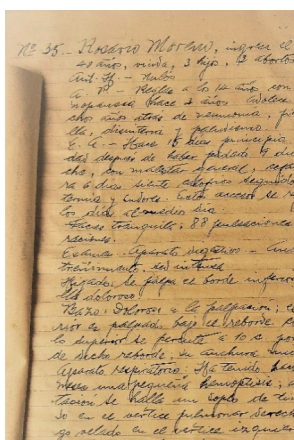 Nº 35.- Rosario Moreno, ingresa el
40 años, viuda, 3 hijos, 3 abortos
Ant. H - nulos
A. P - Reglas a los 14 años con
nopausia hace 2 años.
chos años atrás de neumonía,
lla, disentería y paludismo.
E. A. - Hace 15 días principia
das después de haber
cha, con malestar general,
ra 6 días
termia y sudores. Estos accesos se r
los días al medio día.
88 pulsaciones
raciones.
Examen. Aparato digestivo -
sed intensa
Hígado: Se palpa el borde inferior
lla doloroso.
Bazo: Doloroso a la palpación;
rior es palpado bajo el reborde
lo superior se percute a 10 c. por
de dicho reborde, su anchura
Aparato respiratorio: Ha tenido
una pequeña hemoptisis;
tación se halla un soplo de
so en el vértice pulmonar derecho
go velado en el vértice izquier